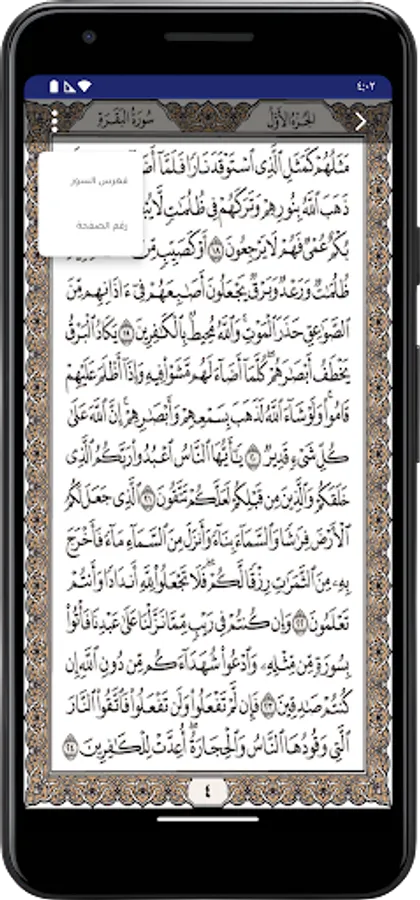 ٤:٠٢
سُورَةُ البَقَرَةِ
الجُزْءُ الأَوَّلُ
فهرس السور
رقم الصفحة
مَثَلُهُمْ كَمَثَلِ ٱلَّذِى ٱسْتَوْقَدَ نَارًا فَلَمَّآ
ذَهَبَ ٱللَّهُ بِنُورِهِمْ وَتَرَكَهُمْ فِى ظُلُمَٰتٍ لَّا
بُكْمٌ عُمْىٌ فَهُمْ لَا يَرْجِعُونَ ١٨ أَوْ كَصَيِّبٍ مِّنَ
ظُلُمَٰتٌ وَرَعْدٌ وَبَرْقٌ يَجْعَلُونَ أَصَٰبِعَهُمْ فِىٓ ءَاذَانِهِم مِّنَ
ٱلصَّوَٰعِقِ حَذَرَ ٱلْمَوْتِ وَٱللَّهُ مُحِيطٌۢ بِٱلْكَٰفِرِينَ ١٩ يَكَادُ ٱلْبَرْقُ
يَخْطَفُ أَبْصَٰرَهُمْ كُلَّمَآ أَضَآءَ لَهُم مَّشَوْا۟ فِيهِ وَإِذَآ أَظْلَمَ عَلَيْهِمْ
قَامُوا۟ وَلَوْ شَآءَ ٱللَّهُ لَذَهَبَ بِسَمْعِهِمْ وَأَبْصَٰرِهِمْ إِنَّ ٱللَّهَ عَلَىٰ
كُلِّ شَىْءٍ قَدِيرٌ ٢٠ يَٰٓأَيُّهَا ٱلنَّاسُ ٱعْبُدُوا۟ رَبَّكُمُ ٱلَّذِى
خَلَقَكُمْ وَٱلَّذِينَ مِن قَبْلِكُمْ لَعَلَّكُمْ تَتَّقُونَ ٢١ ٱلَّذِى جَعَلَ لَكُمُ
ٱلْأَرْضَ فِرَٰشًا وَٱلسَّمَآءَ بِنَآءً وَأَنزَلَ مِنَ ٱلسَّمَآءِ مَآءً فَأَخْرَجَ
بِهِۦ مِنَ ٱلثَّمَرَٰتِ رِزْقًا لَّكُمْ فَلَا تَجْعَلُوا۟ لِلَّهِ أَندَادًا وَأَنتُمْ
تَعْلَمُونَ ٢٢ وَإِن كُنتُمْ فِى رَيْبٍ مِّمَّا نَزَّلْنَا عَلَىٰ عَبْدِنَا فَأْتُوا۟
بِسُورَةٍ مِّن مِّثْلِهِۦ وَٱدْعُوا۟ شُهَدَآءَكُم مِّن دُونِ ٱللَّهِ إِن
كُنتُمْ صَٰدِقِينَ ٢٣ فَإِن لَّمْ تَفْعَلُوا۟ وَلَن تَفْعَلُوا۟ فَٱتَّقُوا۟ ٱلنَّارَ
ٱلَّتِى وَقُودُهَا ٱلنَّاسُ وَٱلْحِجَارَةُ أُعِدَّتْ لِلْكَٰفِرِينَ ٢٤
٤